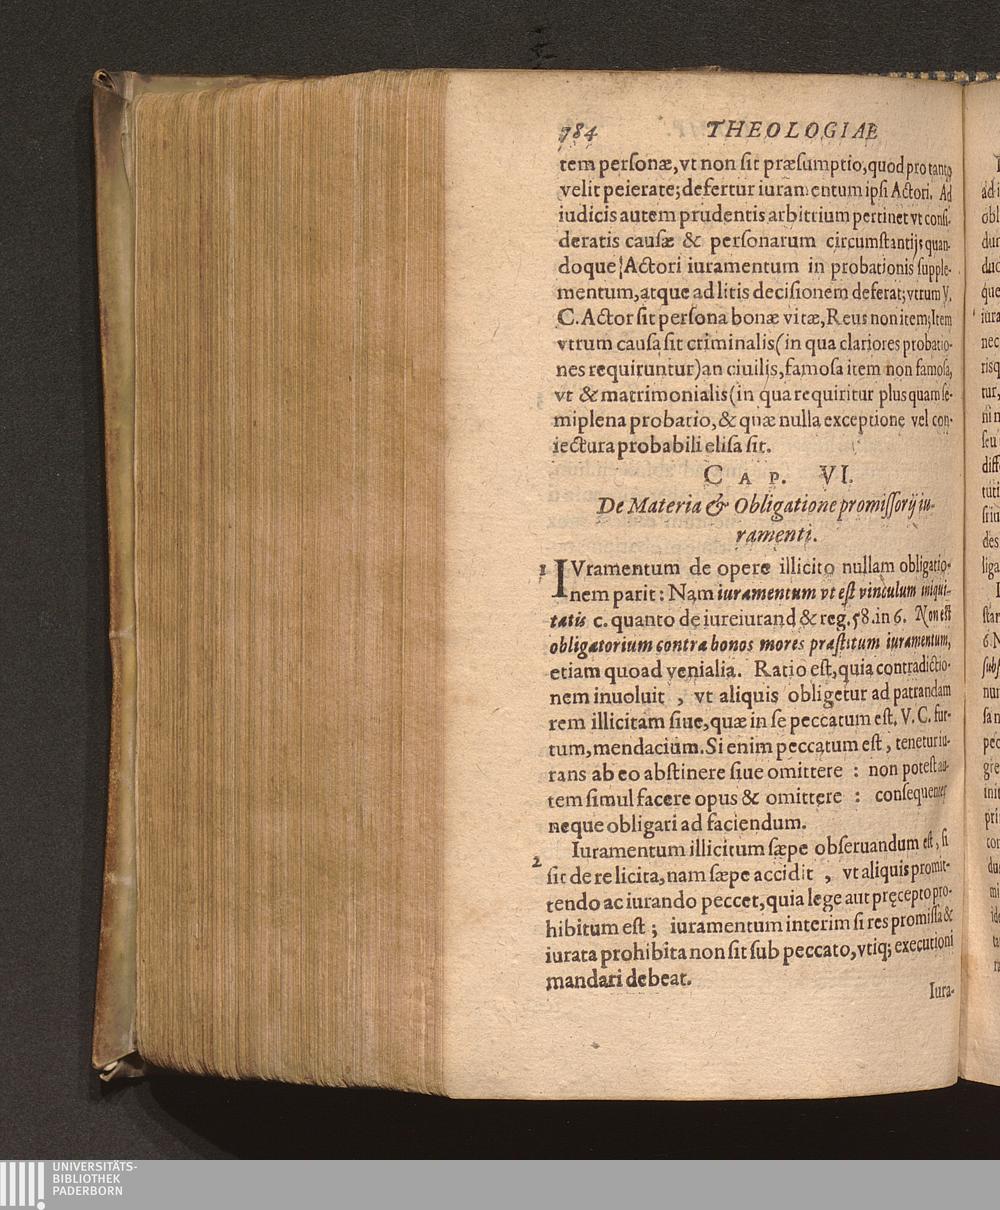 784 THEOLOGIAE
tem personæ, vt non sit præsumptio, quod pro tanto
velit peierare; defertur iuramentum ipsi Actori. Ad
iudicis autem prudentis arbitrium pertinet vt consi-
deratis causæ & personarum circumstantijs quan-
doque Actori iuramentum in probationis supple-
mentum, atque ad litis decisionem deferat; vtrum V.
C. Actor sit persona bonæ vitæ, Reus non item; Item
vtrum causa sit criminalis (in qua clariores probatio-
nes requiruntur) an ciuilis, famosa item non famosa,
vt & matrimonialis (in qua requiritur plus quam se-
miplena probatio, & quæ nulla exceptione vel con-
iectura probabili elisa sit.
CAP. VI.
De Materia & Obligatione promissorij iu-
ramenti.
1 IVramentum de opere illicito nullam obligatio-
nem parit: Nam iuramentum vt est vinculum iniqui-
tatis c. quanto de iureiurand & reg. 58. in 6. Non est
obligatorium contra bonos mores præstitum iuramentum,
etiam quoad venialia. Ratio est, quia contradictio-
nem inuoluit , vt aliquis obligetur ad patrandam
rem illicitam siue, quæ in se peccatum est, V. C. fur-
tum, mendacium. Si enim peccatum est, tenetur iu-
rans ab eo abstinere siue omittere : non potest au-
tem simul facere opus & omittere : consequenter
neque obligari ad faciendum.
2 Iuramentum illicitum sæpe obseruandum est, si
sit de re licita, nam sæpe accidit , vt aliquis promit-
tendo ac iurando peccet, quia lege aut pręcepto pro-
hibitum est ; iuramentum interim si res promissa &
iurata prohibita non sit sub peccato, vtiq; executioni
mandari debeat.
Iura-
UNIVERSITÄTS-
BIBLIOTHEK
PADERBORN